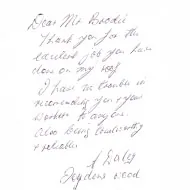 Dear Mr Brodie
Thank you for the
excellent job you have
done on my roof
I have no trouble in
recommending you & your
workers to anyone.
Also being trustworthy
& reliable.
Daley